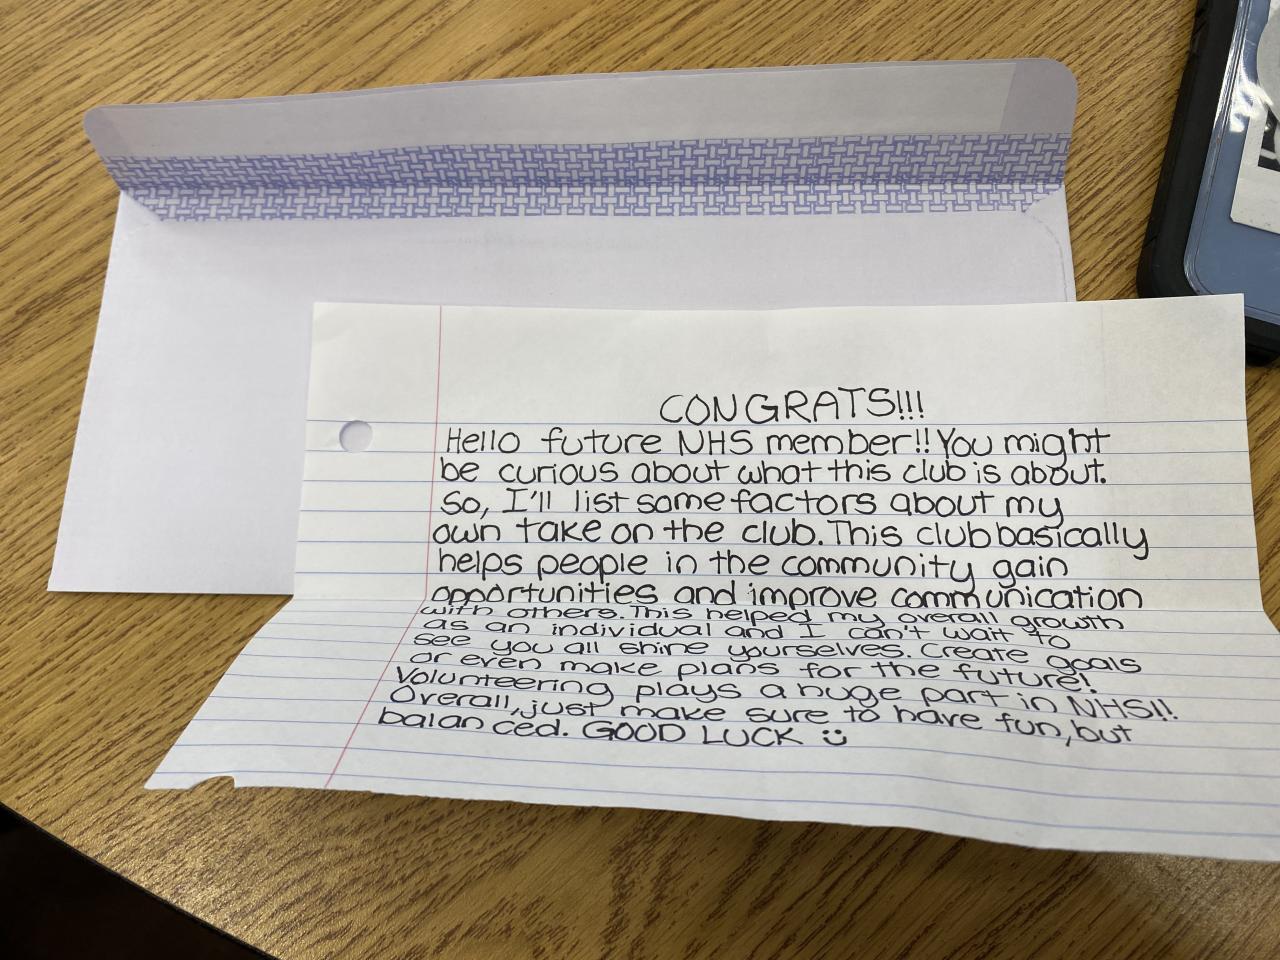 CONGRATS!!!
Hello future NHS member!! You might
be curious about what this club is about.
So, I'll list some factors about my
own take on the club. This club basically
helps people in the community gain
opportunities and improve communication
with others. This helped my overall growth
as an individual and I can't wait to
see you all shine yourselves. Create goals
or even make plans for the future!
Volunteering plays a huge part in NHS!!
Overall, just make sure to have fun, but
balanced. GOOD LUCK